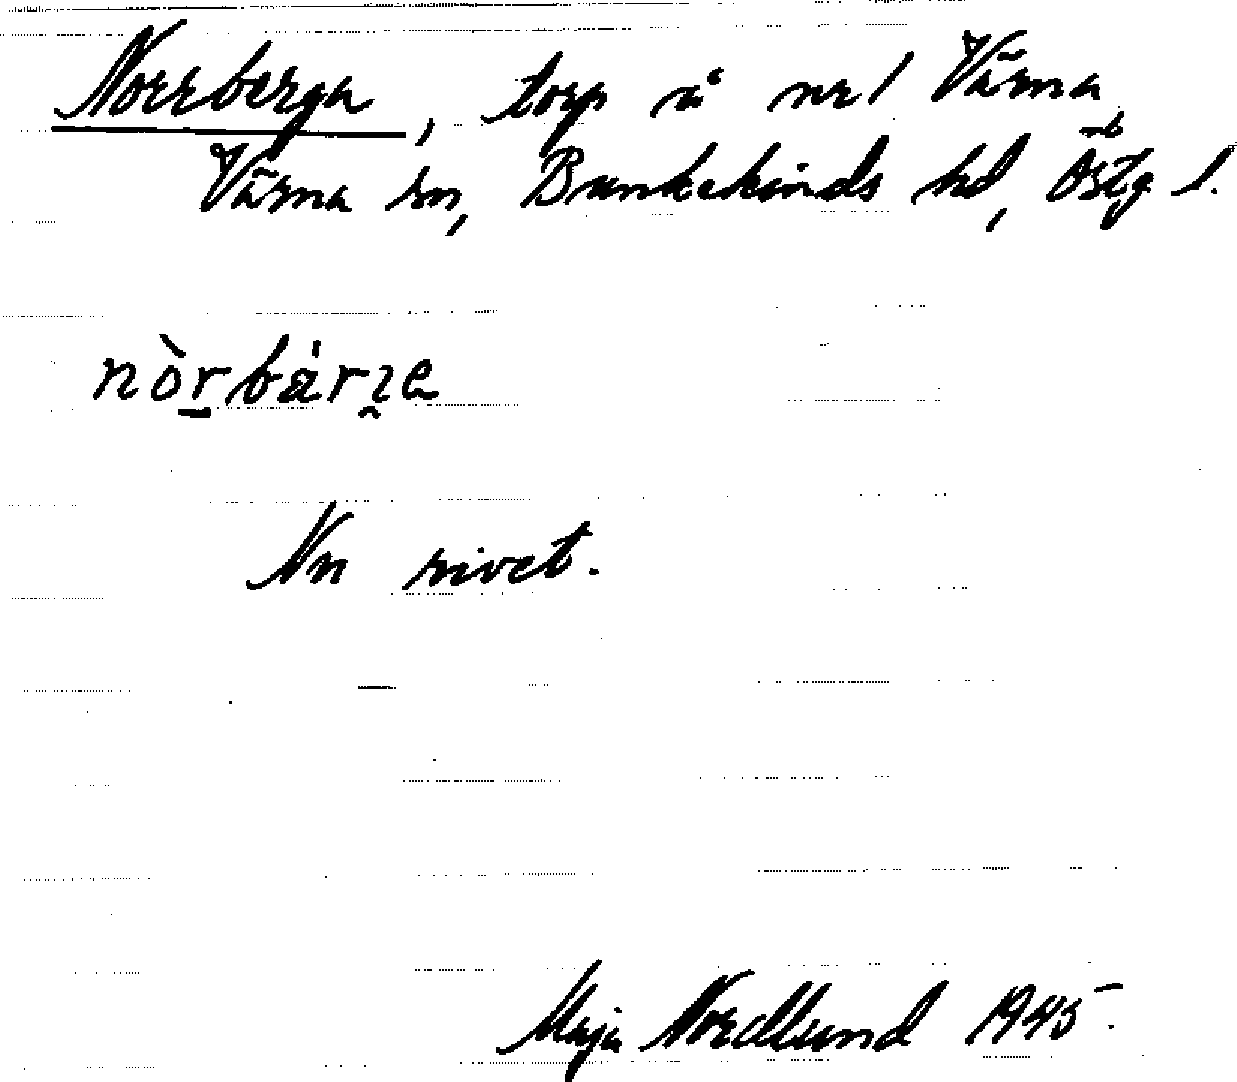 Norrberga, torp å nr 1 Värna
Värna sn, Bankekinds hd, Östg. l.
nòrbárɪe
Nu rivet.
Maja Nordlund 1945.